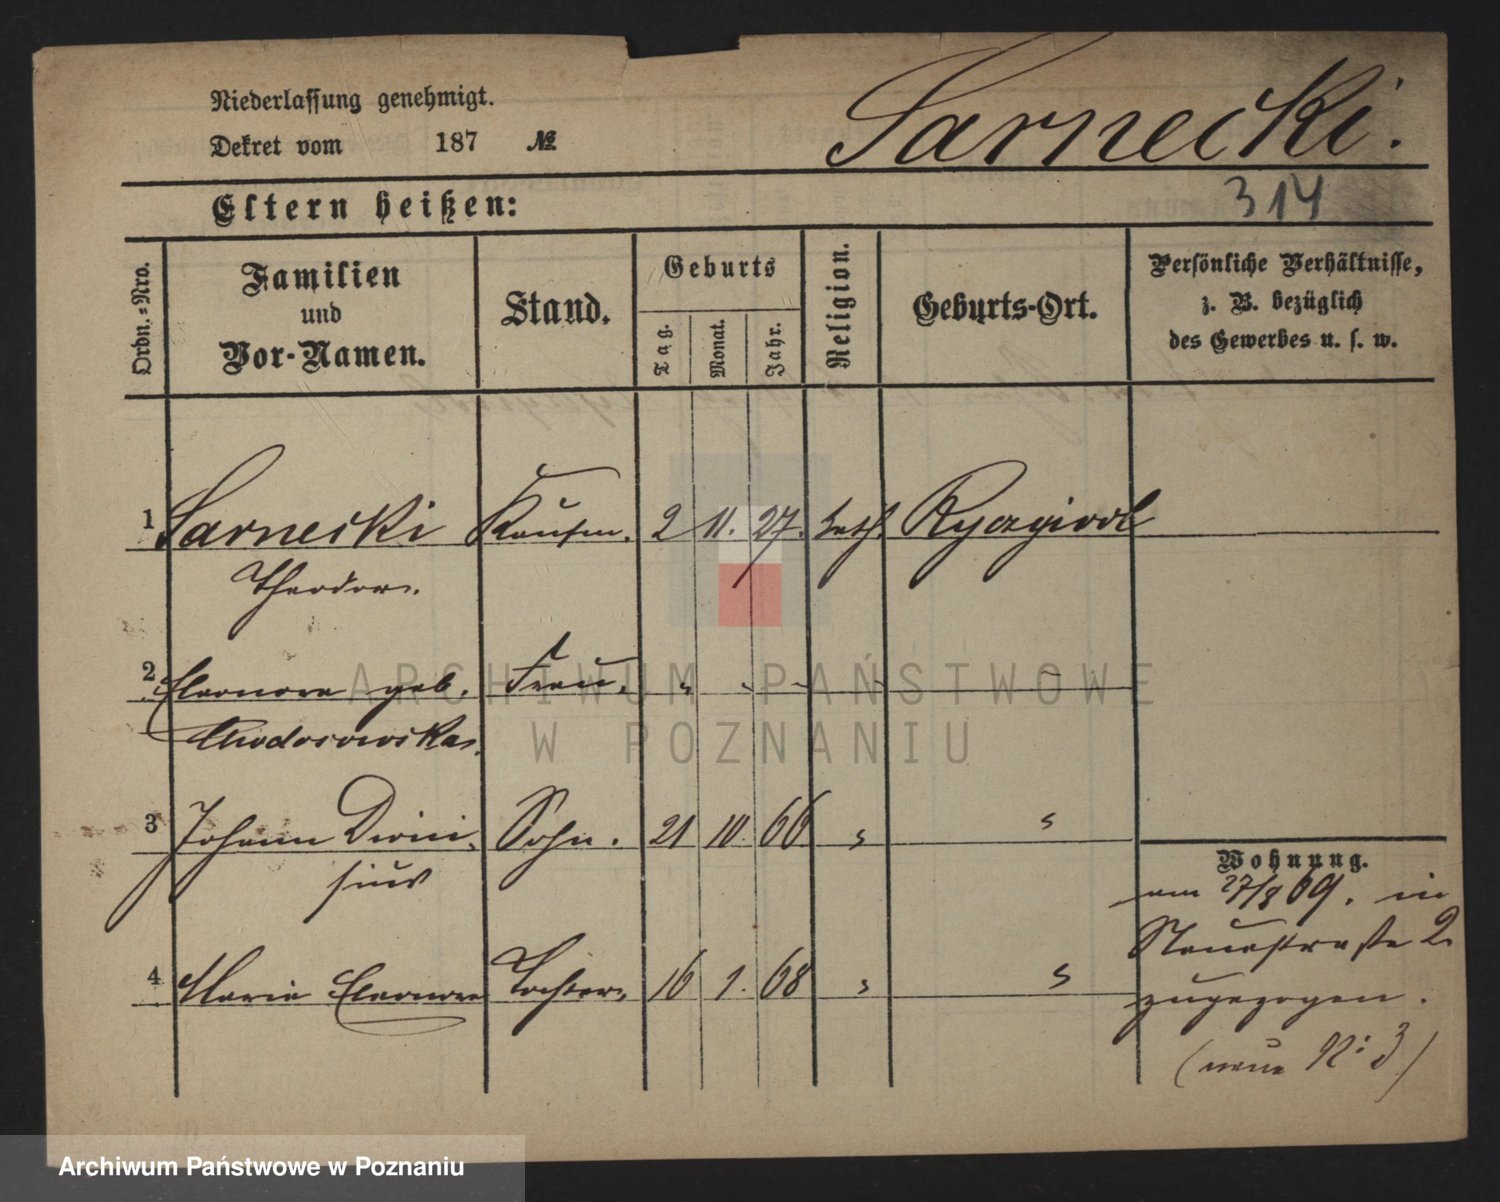 Niederlassung genehmigt.
Dekret vom 187 №
Sarnecki.
Eltern heißen:
314
Ordn.-Nro.
Familien
und
Vor-Namen.
Stand.
Geburts
Tag.
Monat.
Jahr.
Religion.
Geburts-Ort.
Persönliche Verhältnisse,
z. B. bezüglich
des Gewerbes u. s. w.
1 Sarnecki Kaufm. 2 11. 27. kath.
Theodor.
2 Eleonore geb. Frau.
3 Johann Dioni- Sohn. 21 10. 66
sius
Wohnung.
am 27/8 69. in
4 Marie Eleonore Tochter. 16 1. 68
Neuestraße 2.
zugezogen.
(neue N: 3)
ARCHIWUM PAŃSTWOWE
W POZNANIU
Archiwum Państwowe w Poznaniu